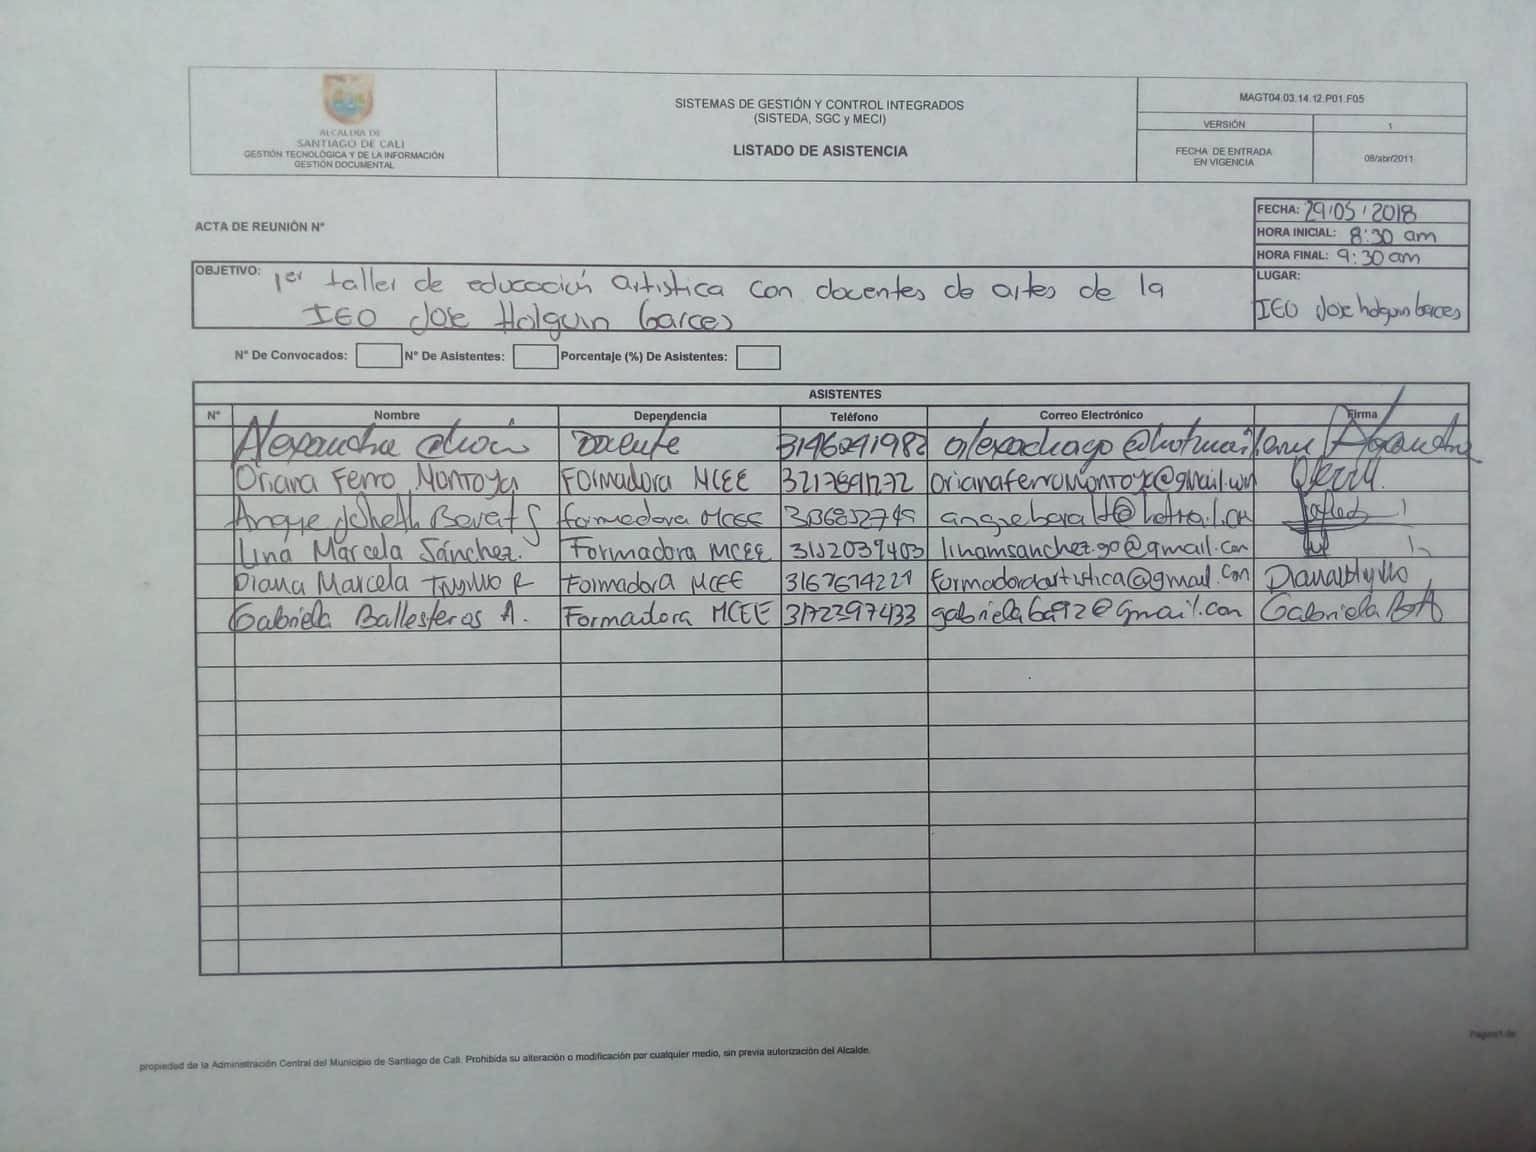 ALCALDÍA DE
SANTIAGO DE CALI
GESTIÓN TECNOLÓGICA Y DE LA INFORMACIÓN
GESTIÓN DOCUMENTAL
SISTEMAS DE GESTIÓN Y CONTROL INTEGRADOS
(SISTEDA, SGC y MECI)
LISTADO DE ASISTENCIA
MAGT04.03.14.12.P01.F05
VERSIÓN 1
FECHA DE ENTRADA
EN VIGENCIA
08/abr/2011
ACTA DE REUNIÓN N°
FECHA: 29/05/2018
HORA INICIAL: 8:30 am
HORA FINAL: 9:30 am
LUGAR:
IEO Jose holguin Garces
OBJETIVO: 1er taller de educación artistica con docentes de artes de la
IEO Jose Holguin Garces
N° De Convocados: N° De Asistentes: Porcentaje (%) De Asistentes:
ASISTENTES
N° Nombre Dependencia Teléfono Correo Electrónico Firma
Docente
Oriana Ferro Montoya Formadora MCEE orianaferromontoya@gmail.com
formadora MCEE
Lina Marcela Sánchez. Formadora MCEE 3152039403 linamsanchez.90@gmail.con
Diana Marcela Trujillo R Formadora MCEE formadoraartistica@gmail.con
Gabriela Ballesteros A. Formadora MCEE 3172397433 gabriela6a92@gmail.con Gabriela BA
propiedad de la Administración Central del Municipio de Santiago de Cali. Prohibida su alteración o modificación por cualquier medio, sin previa autorización del Alcalde.